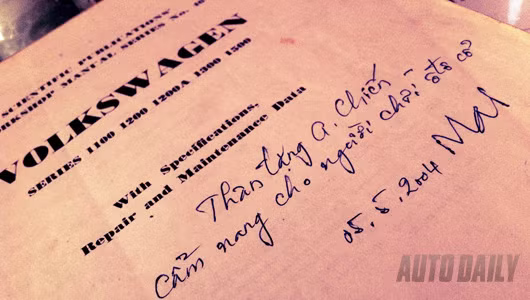 SCIENTIFIC PUBLICATIONS'
WORKSHOP MANUAL SERIES No.
VOLKSWAGEN
SERIES 1100 1200 1200A 1300 1500
With Specifications,
Repair and Maintenance Data
Thân tặng A. Chiến
Cẩm nang cho người chơi ôtô cổ
05.5.2004
AUTO DAILY